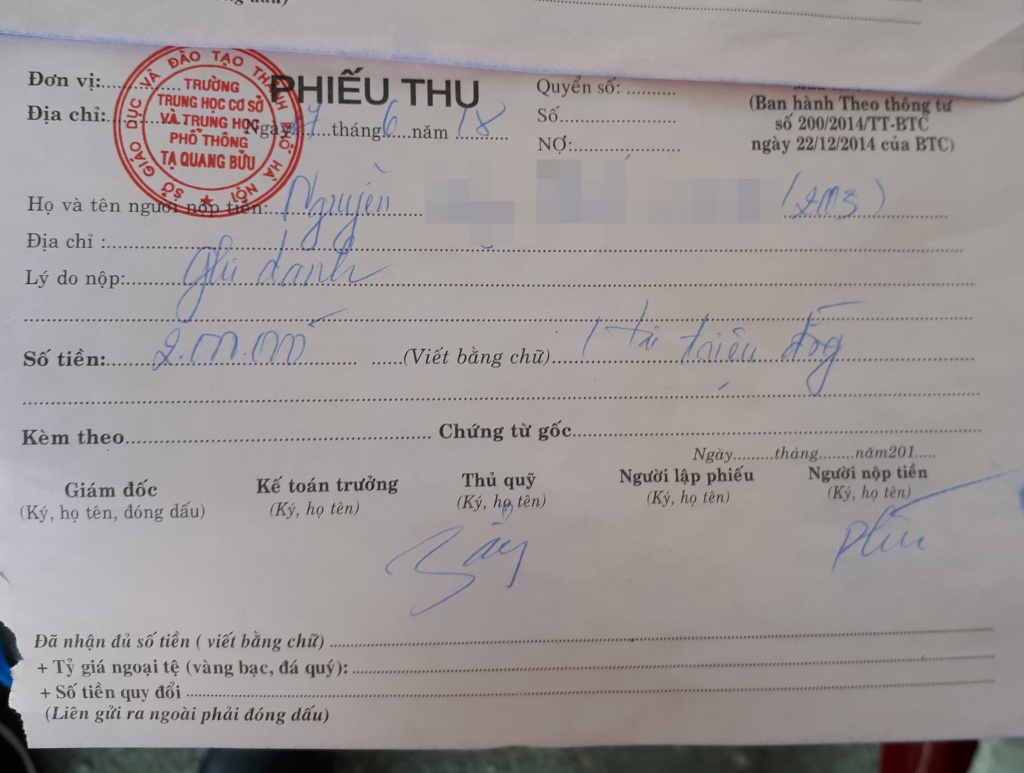 Đơn vị:
PHIẾU THU
Quyển số:
Địa chỉ:
Ngày 17 tháng 6 năm 18
Số
NỢ:
(Ban hành Theo thông tư
số 200/2014/TT-BTC
ngày 22/12/2014 của BTC)
SỞ GIÁO DỤC VÀ ĐÀO TẠO THÀNH PHỐ HÀ NỘI
TRƯỜNG
TRUNG HỌC CƠ SỞ
VÀ TRUNG HỌC
PHỔ THÔNG
TẠ QUANG BỬU
Họ và tên người nộp tiền: Nguyễn (2003)
Địa chỉ :
Lý do nộp: ghi danh
Số tiền: 2.000.000 (Viết bằng chữ) Hai triệu đồng
Kèm theo Chứng từ gốc
Ngày tháng năm201
Giám đốc Kế toán trưởng Thủ quỹ Người lập phiếu Người nộp tiền
(Ký, họ tên, đóng dấu) (Ký, họ tên) (Ký, họ tên) (Ký, họ tên) (Ký, họ tên)
Đã nhận đủ số tiền ( viết bằng chữ)
+ Tỷ giá ngoại tệ (vàng bạc, đá quý):
+ Số tiền quy đổi
(Liên gửi ra ngoài phải đóng dấu)